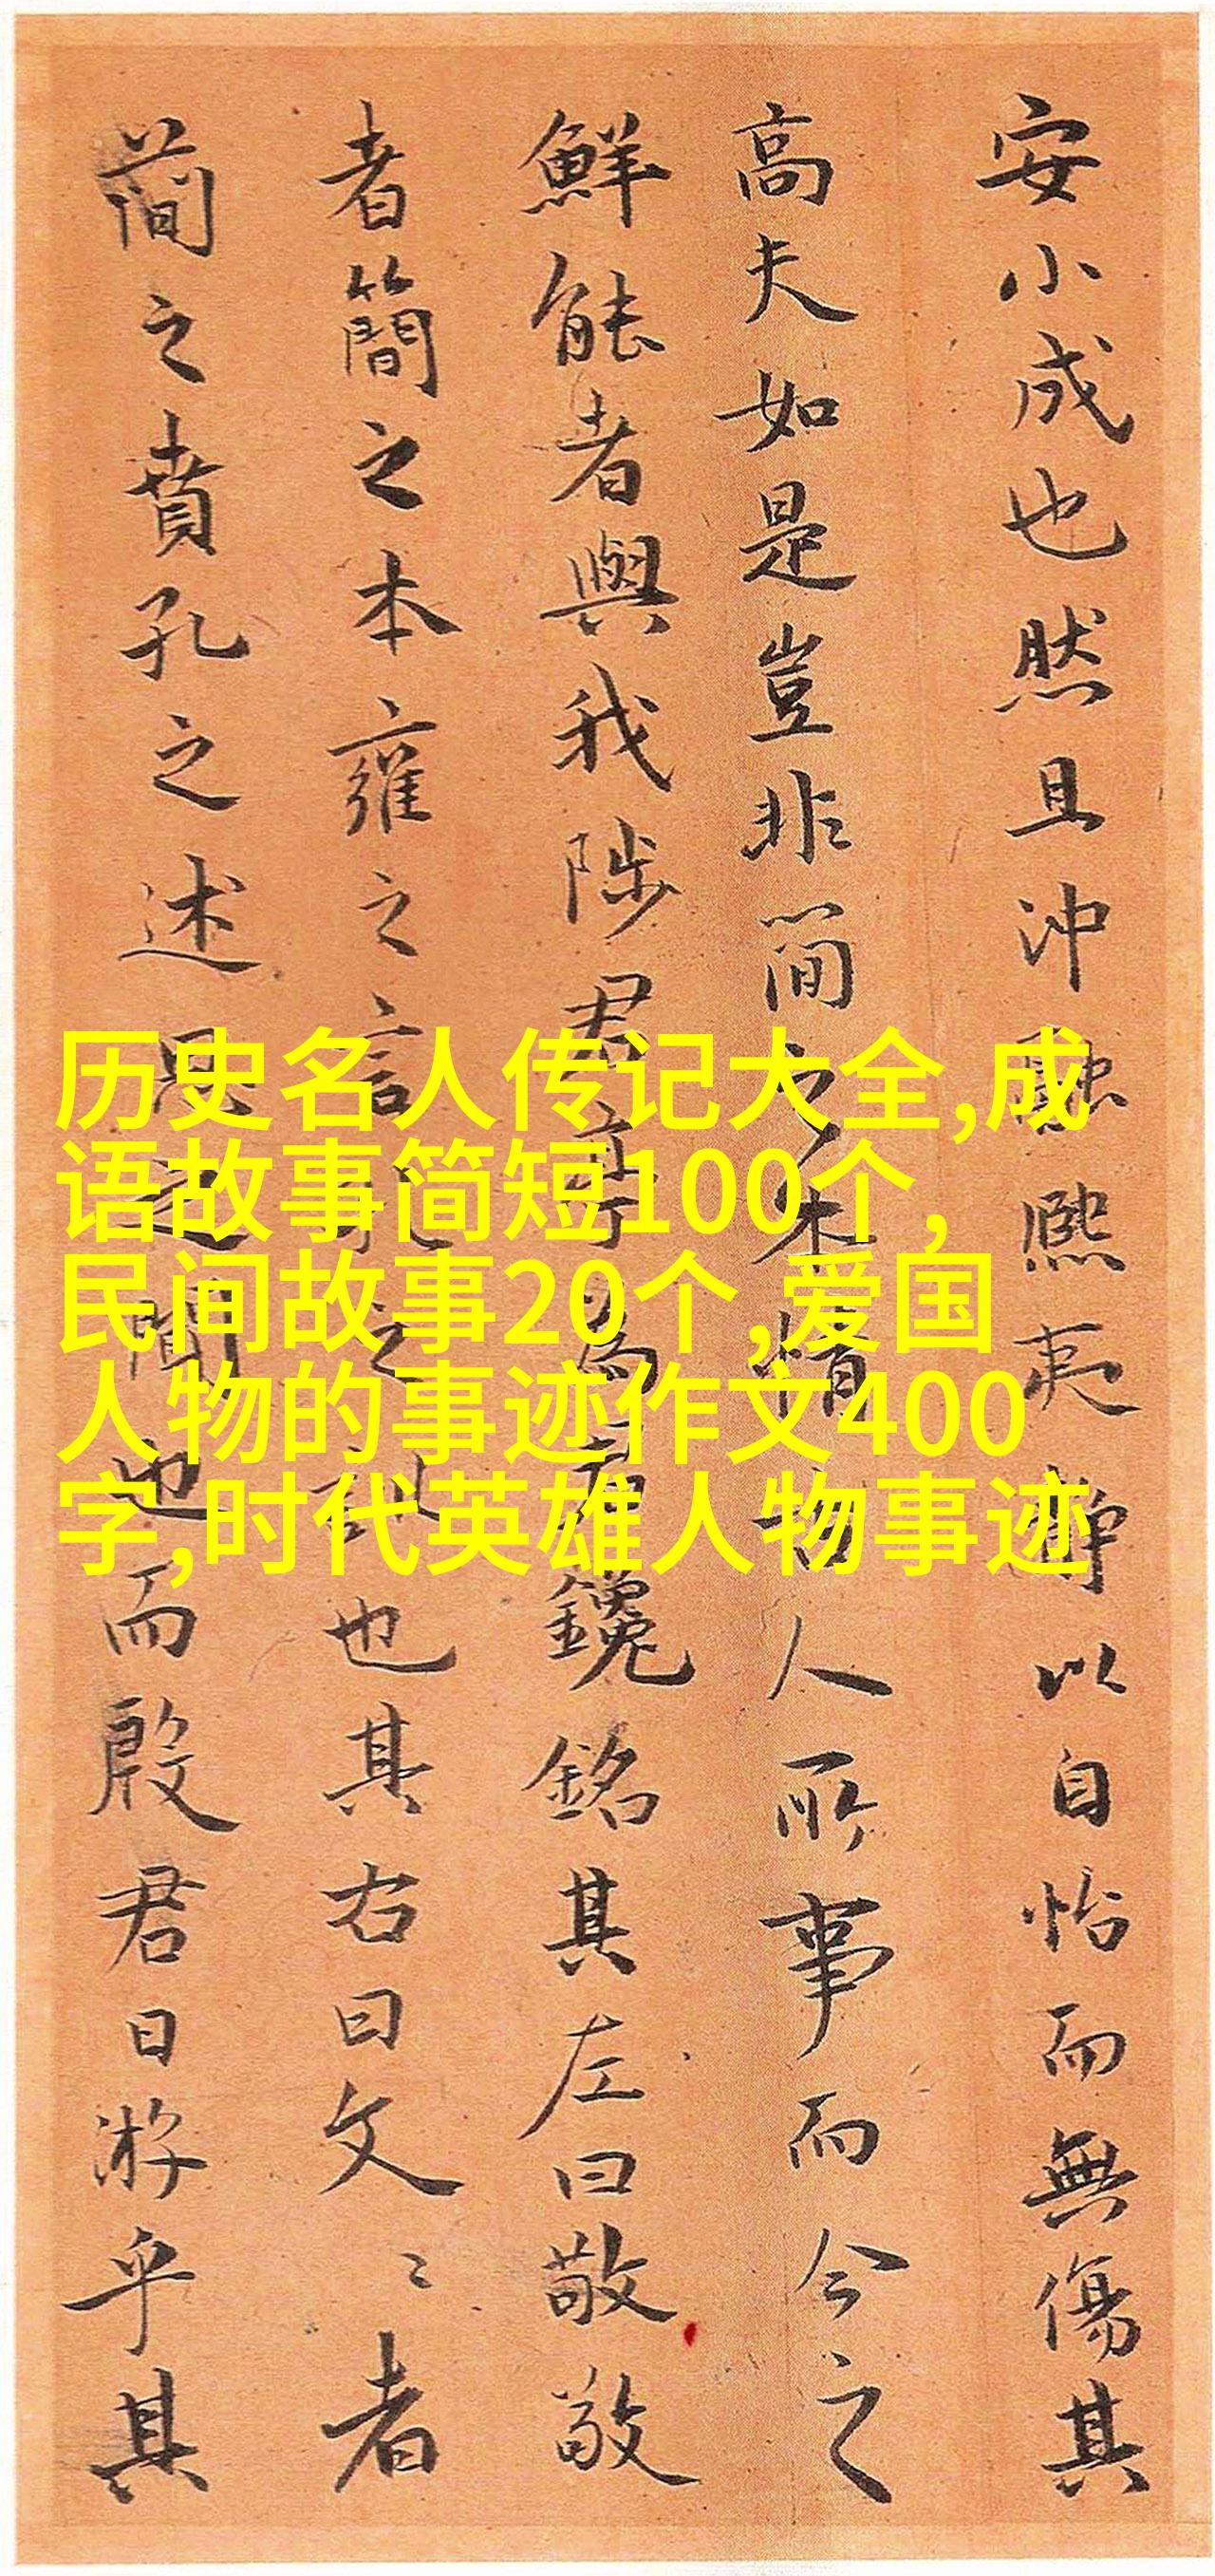 安小成也然且沖融熙夷静以自怡而無傷其
高夫如是豈非簡之本情人所事而今之
鮮能者與我陟君亭為君鑱銘其左曰敬敬
者簡之本雍之言之訓也其右曰文〻者
簡之賁孔之述思之間也而殷君日游乎其
历史名人传记大全,成
语故事简短100个,
民间故事20个,爱国
人物的事迹作文400
字,时代英雄人物事迹